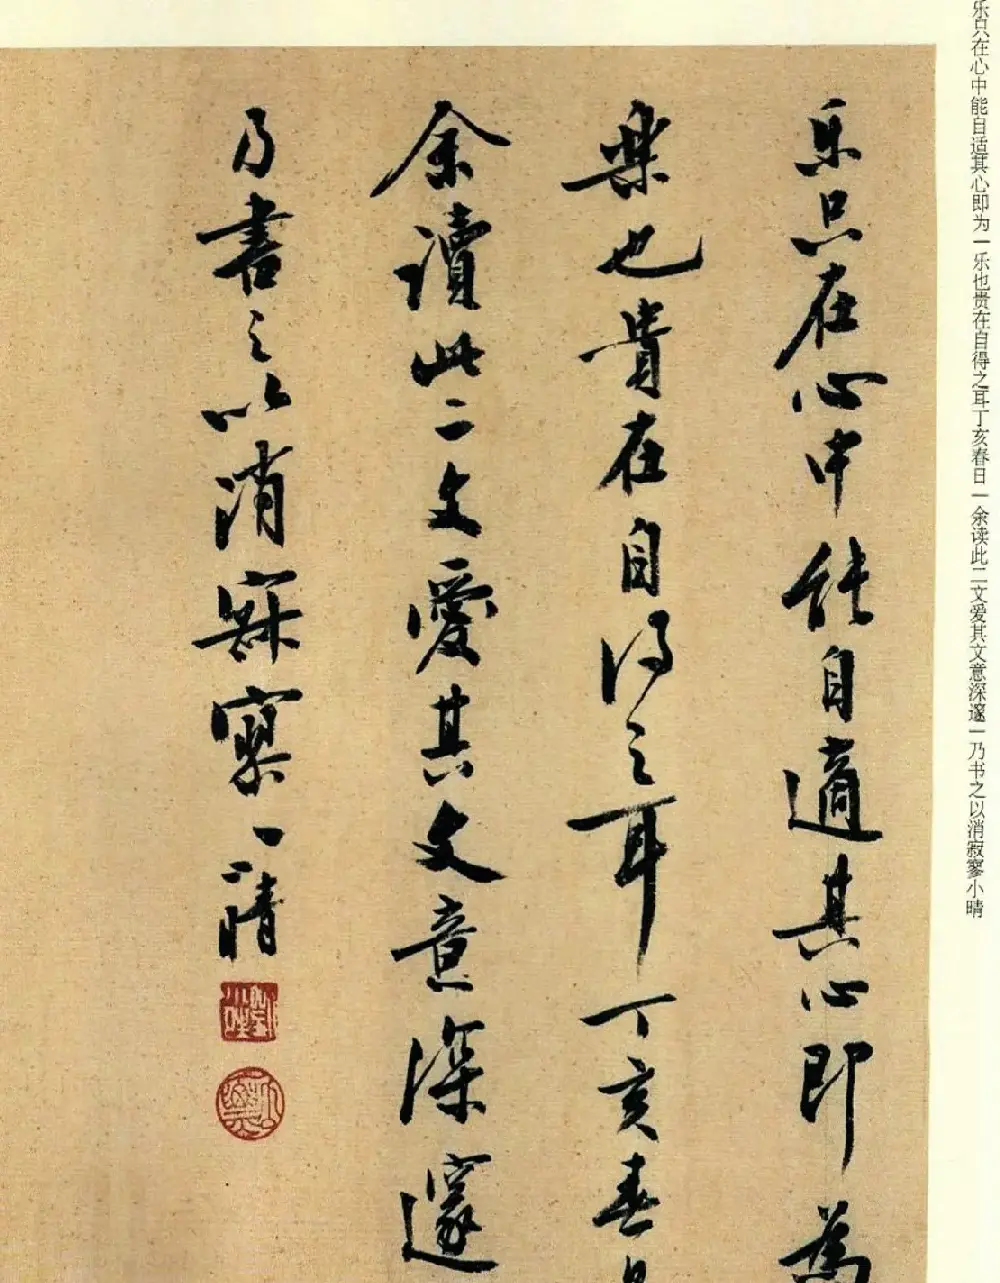 乐只在心中能自适其心即为一乐也贵在自得之耳丁亥春日一余读此二文爱其文意深邃一乃书之以消寂寥小晴
乐只在心中能自適其心即為
樂也貴在自得之耳丁亥春日
余讀此二文愛其文意深邃
乃書之以消寂寥小晴